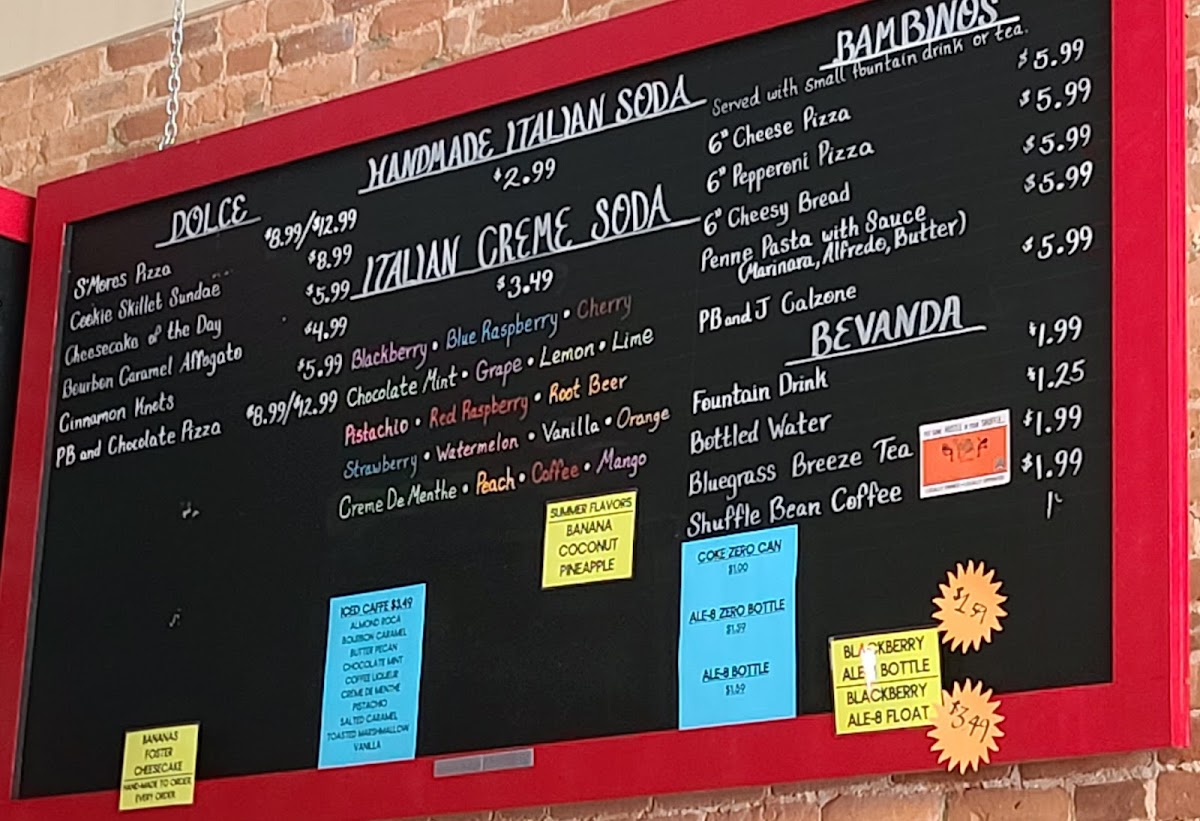 DOLCE
S'Mores Pizza $8.99/$12.99
Cookie Skillet Sundae $8.99
Cheesecake of the Day $5.99
Bourbon Caramel Affogato $4.99
Cinnamon Knots $5.99
PB and Chocolate Pizza $8.99/$12.99
BANANAS
FOSTER
CHEESECAKE
HAND-MADE TO ORDER
EVERY ORDER
HANDMADE ITALIAN SODA
$2.99
ITALIAN CREME SODA
$3.49
Blackberry • Blue Raspberry • Cherry
Chocolate Mint • Grape • Lemon • Lime
Pistachio • Red Raspberry • Root Beer
Strawberry • Watermelon • Vanilla • Orange
Creme De Menthe • Peach • Coffee • Mango
SUMMER FLAVORS
BANANA
COCONUT
PINEAPPLE
ICED CAFFE $3.49
ALMOND ROCA
BOURBON CARAMEL
BUTTER PECAN
CHOCOLATE MINT
COFFEE LIQUEUR
CRÈME DE MENTHE
PISTACHIO
SALTED CARAMEL
TOASTED MARSHMALLOW
VANILLA
BAMBINOS
Served with small fountain drink or tea.
6" Cheese Pizza $5.99
6" Pepperoni Pizza $5.99
6" Cheesy Bread $5.99
Penne Pasta with Sauce $5.99
(Marinara, Alfredo, Butter)
PB and J Calzone $5.99
BEVANDA
Fountain Drink $1.99
Bottled Water $1.25
Bluegrass Breeze Tea $1.99
Shuffle Bean Coffee $1.99
PUT SOME HUSTLE IN YOUR SHUFFLE
LOCALLY OWNED • LOCALLY OPERATED
COKE ZERO CAN
$1.00
ALE-8 ZERO BOTTLE
$1.59
ALE-8 BOTTLE
$1.59
BLACKBERRY
ALE-8 BOTTLE
$1.59
BLACKBERRY
ALE-8 FLOAT
$3.49